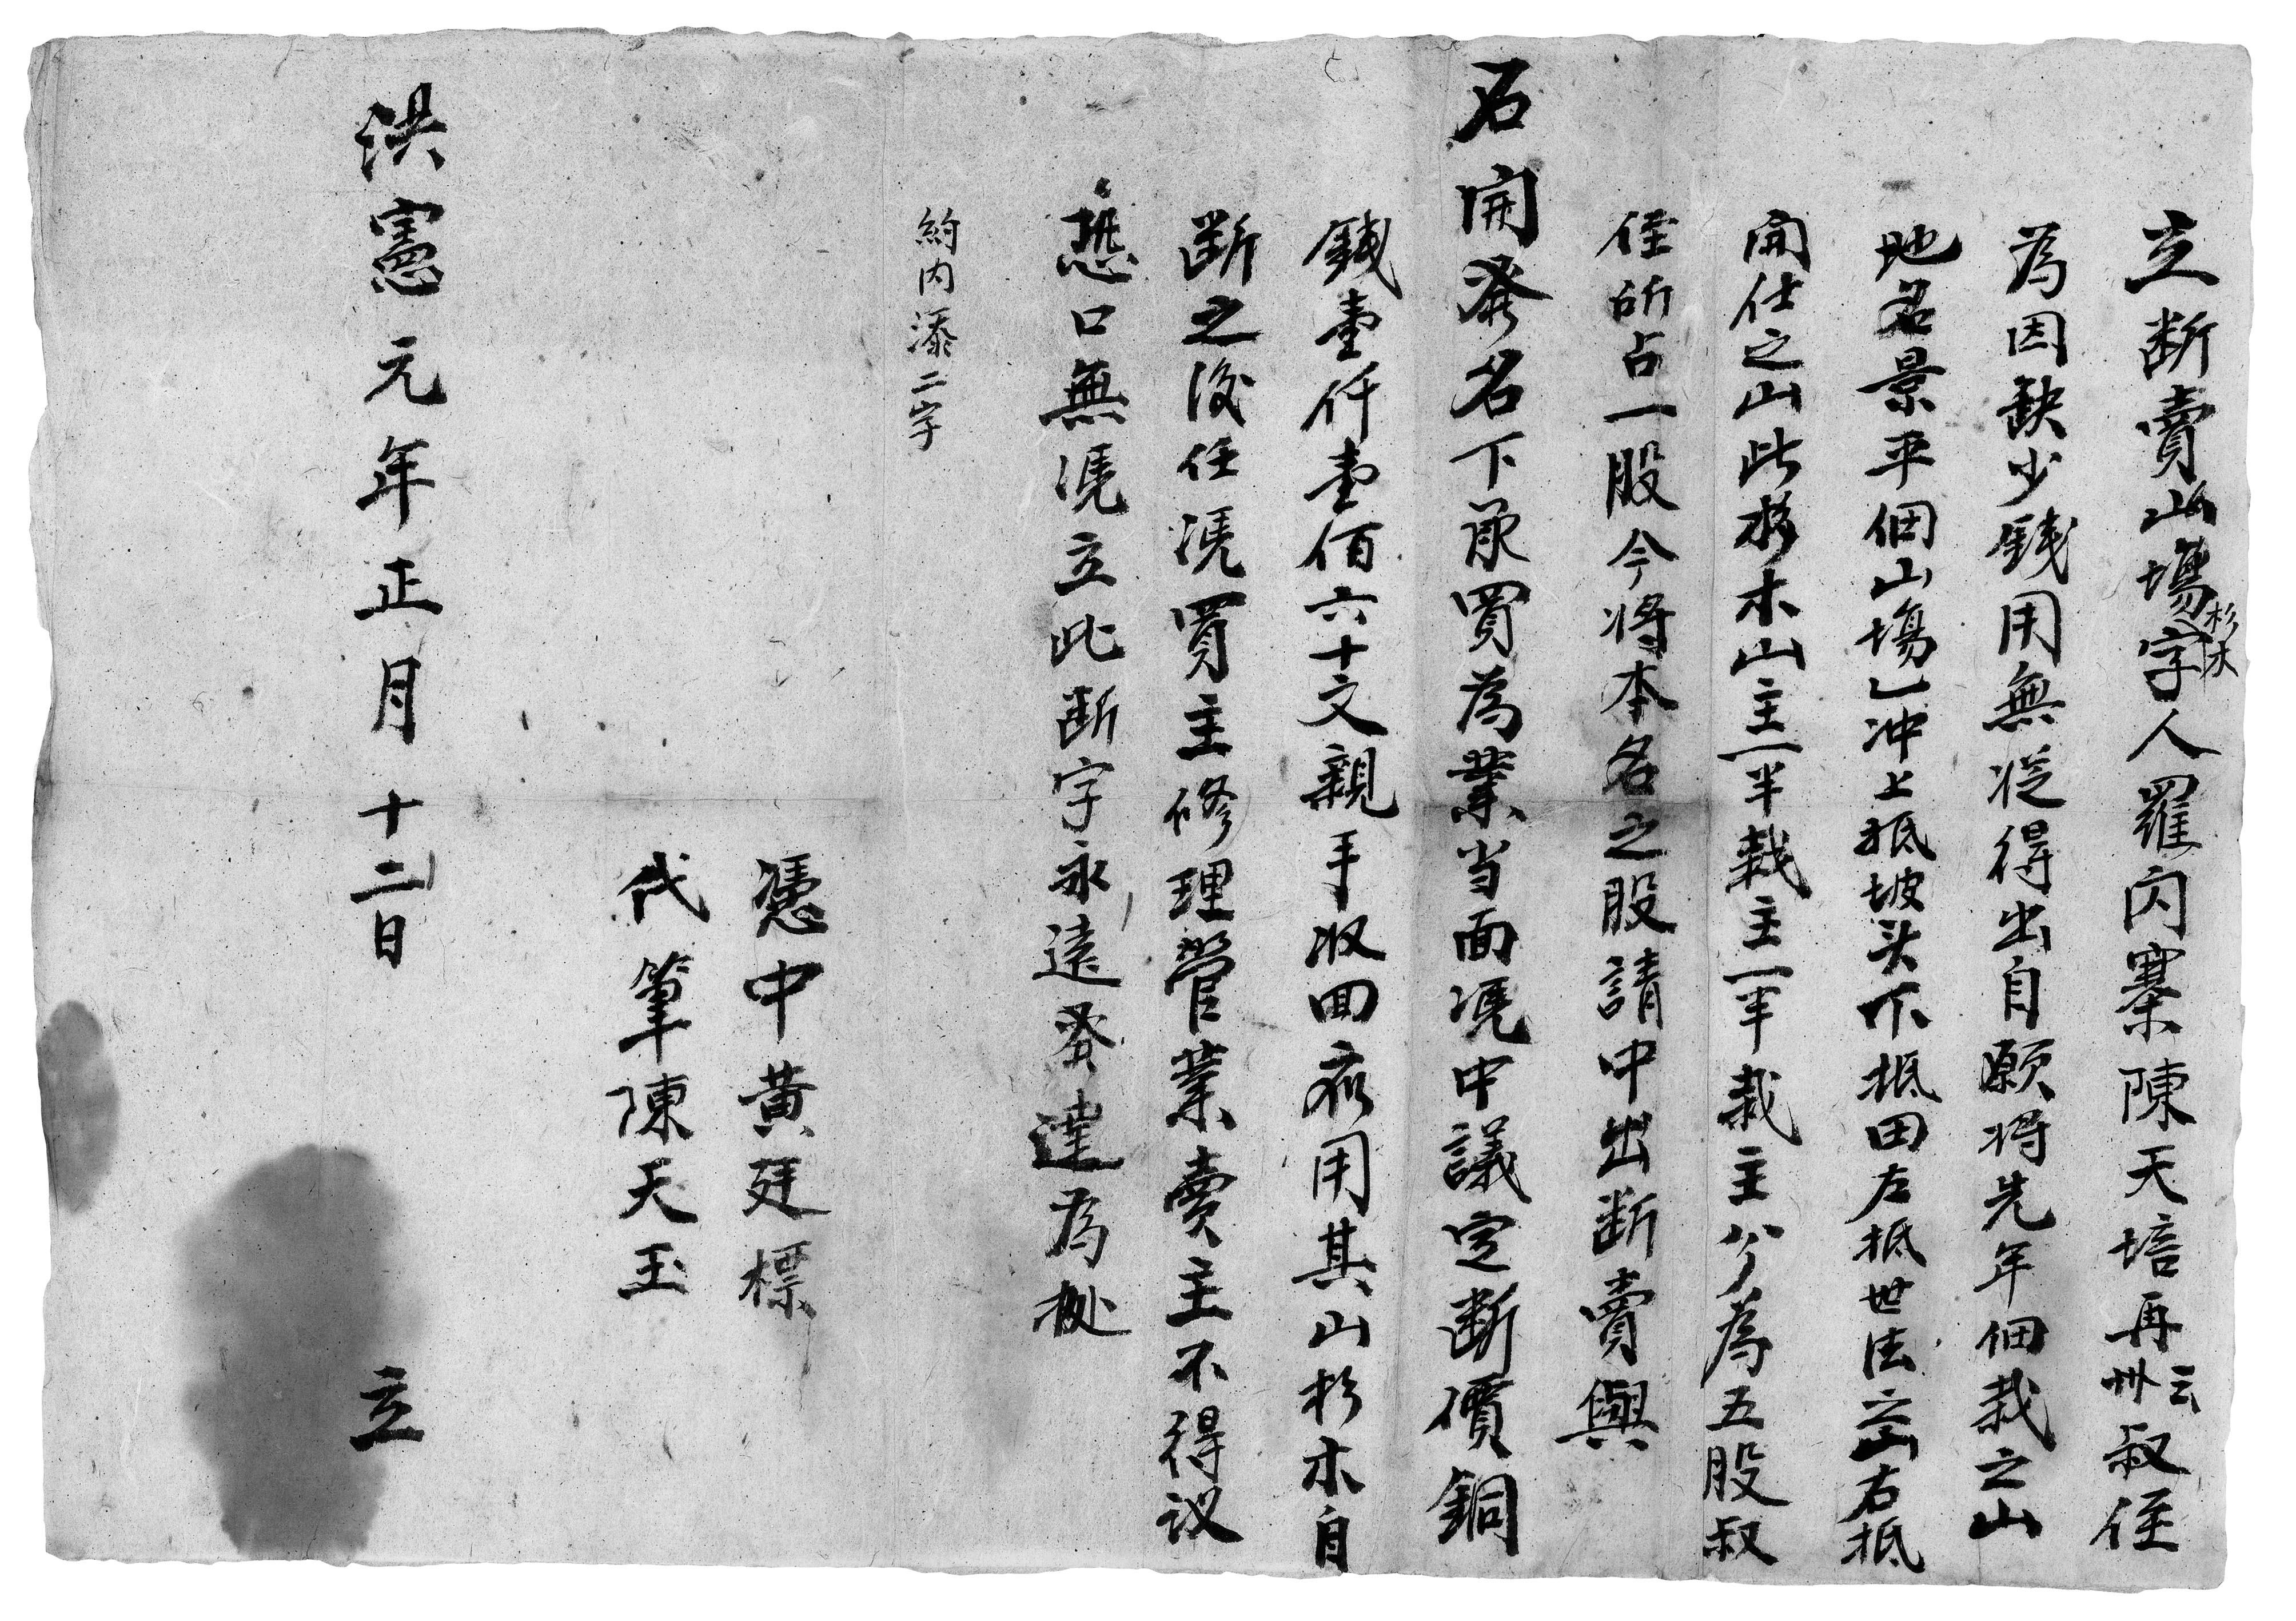 立断賣山場杉木字人羅闪寨陳天培再卅云叔侄
為因缺少錢用無從得出自願将先年佃栽之山
地名景平個山塲乚冲上抵坡头下抵田左抵世法之山右抵
開仕之山此杉木山主一半栽主一半栽主分為五股叔
侄所占一股今将本名之股請中出断賣與
石開發名下承買為業当面凴中議定断價銅
錢壹仟壹佰六十文親手收回应用其山杉木自
断之後任凴買主修理管業賣主不得议
恐口無凴立此断字永遠發達為據
約内添二字
憑中黄廷標
代筆陳天玉
洪憲元年正月十二日 立